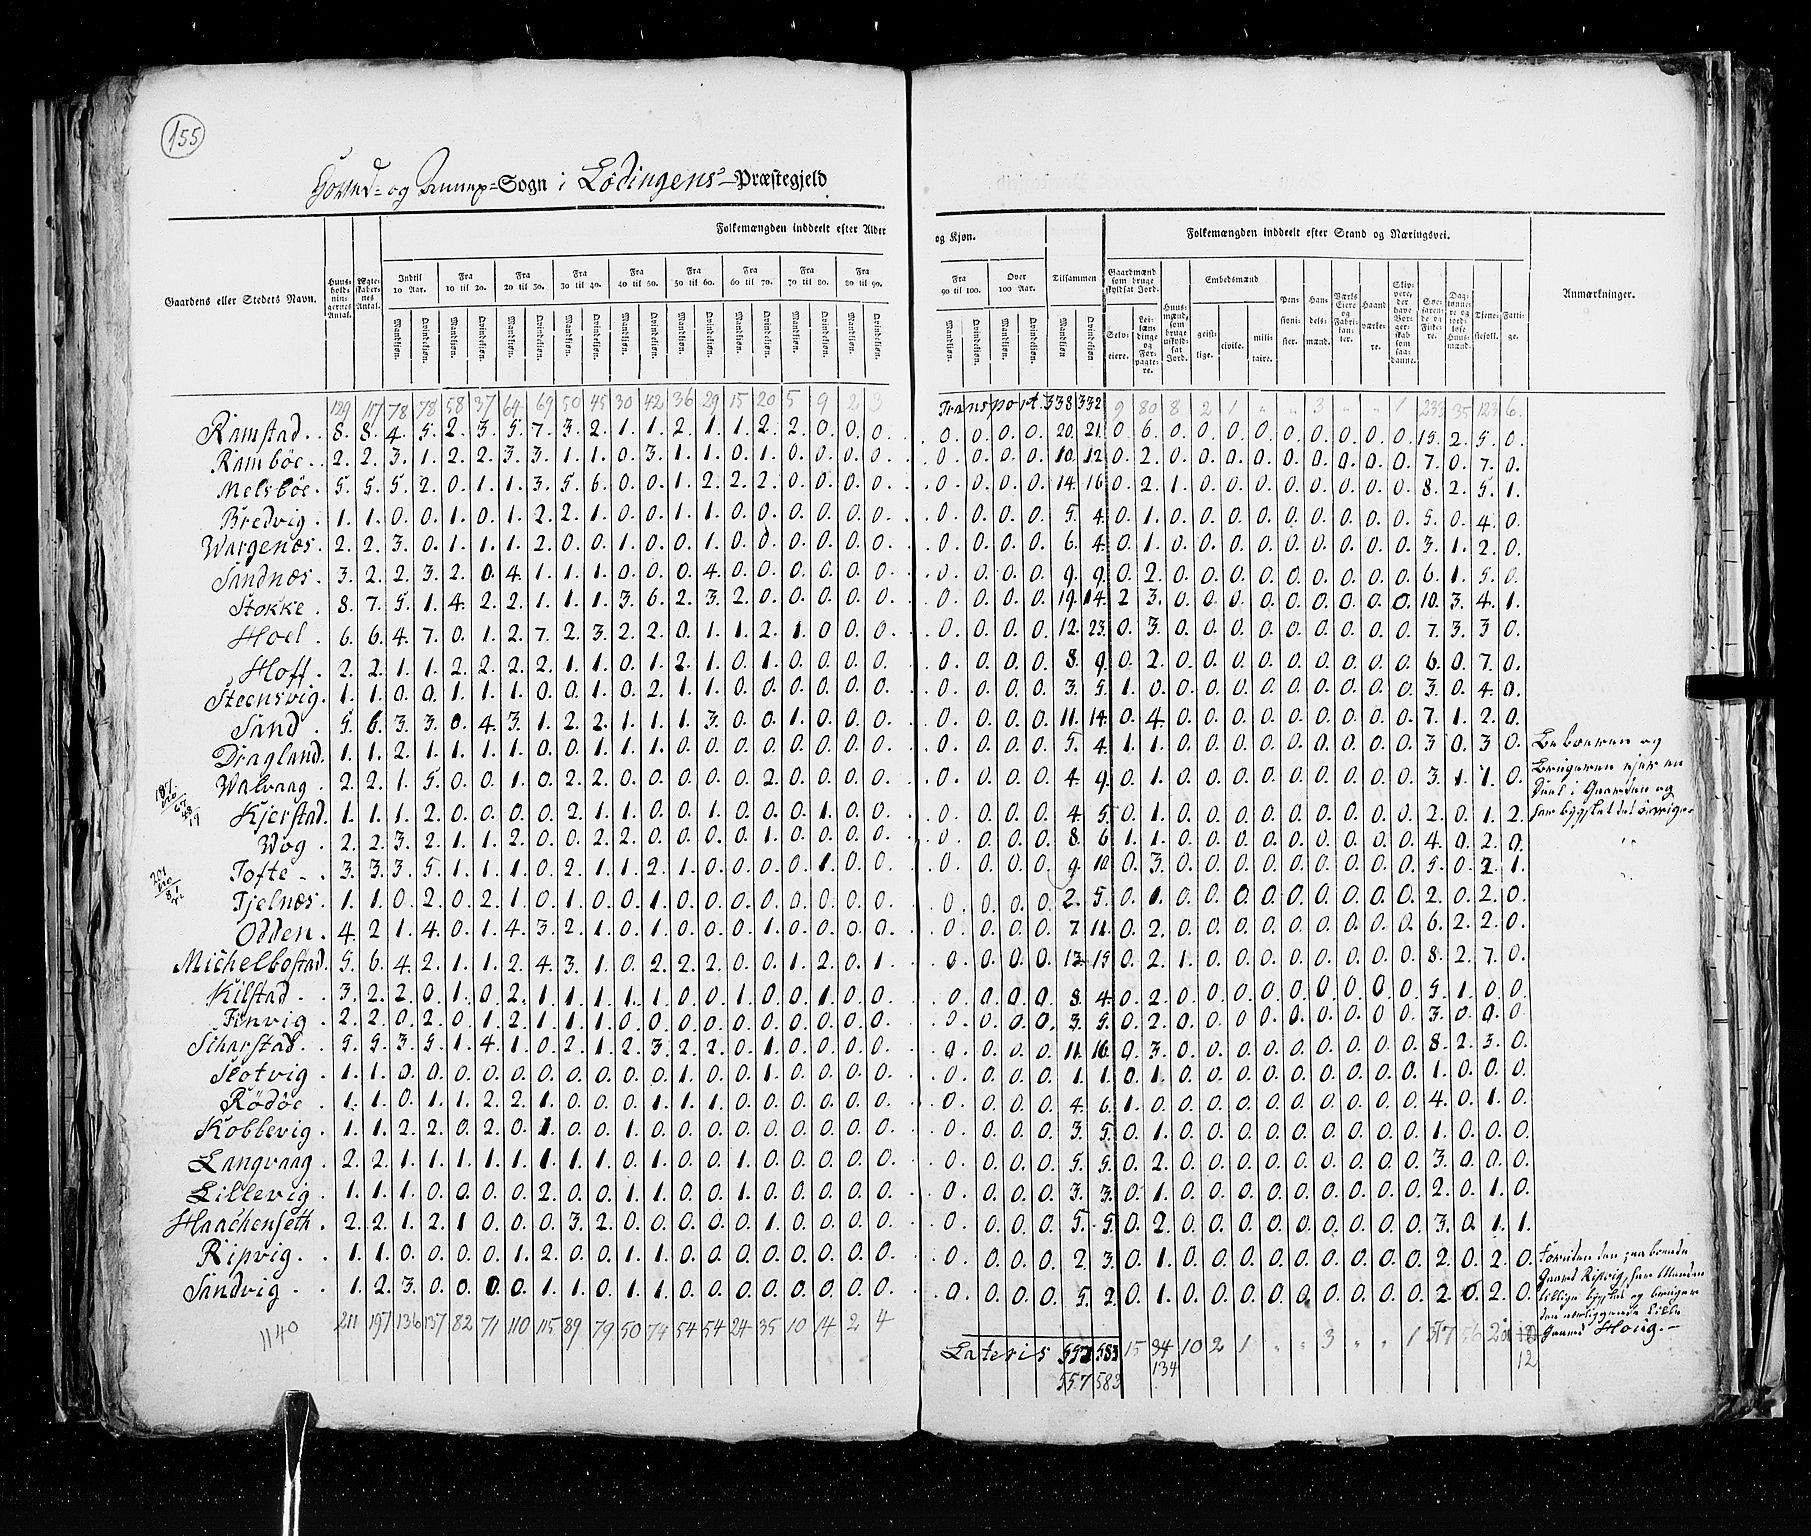 155
og -Sogn i Lødingens-Præstegjeld
Folkemængden inddeelt efter Alder og Kjøn. Folkemængden inddeelt efter Stand og Næringsvei.
Gaardens eller Stedets Navn. Huusholdningernes Antal. Ægteskabernes Antal. Indtil 10 Aar. Fra 10 til 20. Fra 20 til 30. Fra 30 til 40. Fra 40 til 50. Fra 50 til 60. Fra 60 til 70. Fra 70 til 80. Fra 80 til 90. Fra 90 til 100. Over 100 Aar. Tilsammen Anmærkninger.
Mandkjøn. Qvindekjøn.
129 117 78 78 58 37 64 69 50 45 30 42 36 29 15 20 5 9 2 3 Transport. 338 332 9 80 8 2 1 " " 3 " " 1 233 35 123 6.
Ramstad. 8. 8. 4. 5. 2. 3. 5. 7. 3. 2. 1. 1. 2. 1. 1. 2. 2. 0. 0. 0. 0. 0. 0. 0. 20. 21. 0. 6. 0. 0. 0. 0. 0. 0. 0. 0. 0. 15. 2. 5. 0.
Ramböe. 2. 2. 3. 1. 2. 2. 3. 3. 1. 1. 0. 3. 1. 1. 0. 1. 0. 0. 0. 0. 0. 0. 0. 0. 10. 12. 0. 2. 0. 0. 0. 0. 0. 0. 0. 0. 0. 7. 0. 7. 0.
Melsböe. 5. 5. 5. 2. 0. 1. 1. 3. 5. 6. 0. 0. 1. 2. 2. 2. 0. 0. 0. 0. 0. 0. 0. 0. 14. 16. 0. 2. 1. 0. 0. 0. 0. 0. 0. 0. 0. 8. 2. 5. 1.
Bredvig. 1. 1. 0. 0. 1. 0. 1. 2. 2. 1. 0. 0. 1. 1. 0. 0. 0. 0. 0. 0. 0. 0. 0. 0. 5. 4. 0. 1. 0. 0. 0. 0. 0. 0. 0. 0. 0. 5. 0. 4. 0.
Wargenæs. 2. 2. 3. 0. 1. 1. 1. 2. 0. 0. 1. 0. 0. 1. 0. 0. 0. 0. 0. 0. 0. 0. 0. 0. 6. 4. 0. 1. 0. 0. 0. 0. 0. 0. 0. 0. 0. 3. 1. 2. 0.
Sandnæs. 3. 2. 2. 3. 2. 0. 4. 1. 1. 1. 0. 0. 0. 4. 0. 0. 0. 0. 0. 0. 0. 0. 0. 0. 9. 9. 0. 2. 0. 0. 0. 0. 0. 0. 0. 0. 0. 6. 1. 5. 0.
Stokke. 8. 7. 5. 1. 4. 2. 2. 1. 1. 1. 3. 6. 2. 3. 2. 0. 0. 0. 0. 0. 0. 0. 0. 0. 19. 14. 2. 3. 0. 0. 0. 0. 0. 0. 0. 0. 0. 10. 3. 4. 1.
Hoel. 6. 6. 4. 7. 0. 1. 2. 7. 2. 3. 2. 2. 0. 1. 1. 2. 1. 0. 0. 0. 0. 0. 0. 0. 12. 23. 0. 3. 0. 0. 0. 0. 0. 0. 0. 0. 0. 7. 3. 3. 0.
Hoff. 2. 2. 1. 1. 2. 2. 2. 2. 1. 1. 0. 1. 2. 1. 0. 1. 0. 0. 0. 0. 0. 0. 0. 0. 8. 9. 0. 2. 0. 0. 0. 0. 0. 0. 0. 0. 0. 6. 0. 7. 0.
Steensvig. 1. 1. 0. 0. 1. 1. 1. 0. 0. 1. 0. 2. 1. 1. 0. 0. 0. 0. 0. 0. 0. 0. 0. 0. 3. 5. 1. 0. 0. 0. 0. 0. 0. 0. 0. 0. 0. 3. 0. 4. 0.
Sand. 5. 6. 3. 3. 0. 4. 3. 1. 2. 2. 1. 1. 1. 3. 0. 0. 1. 0. 0. 0. 0. 0. 0. 0. 11. 14. 0. 4. 0. 0. 0. 0. 0. 0. 0. 0. 0. 7. 1. 2. 0.
Dragland. 1. 1. 2. 1. 1. 1. 1. 0. 0. 1. 1. 0. 0. 0. 0. 0. 0. 0. 0. 0. 0. 0. 0. 0. 5. 4. 1. 1. 0. 0. 0. 0. 0. 0. 0. 0. 0. 3. 0. 3. 0. Beboeren og
Walvaag. 2. 2. 1. 5. 0. 0. 1. 0. 2. 2. 0. 0. 0. 0. 0. 2. 0. 0. 0. 0. 0. 0. 0. 0. 4. 9. 0. 1. 0. 0. 0. 0. 0. 0. 0. 0. 0. 3. 1. 1. 0. Brugeren ejer en Deel i Gaarden og
Kjerstad. 1. 1. 1. 2. 0. 0. 0. 0. 2. 1. 1. 0. 0. 1. 0. 0. 0. 1. 0. 0. 0. 0. 0. 0. 4. 5. 0. 1. 0. 0. 0. 0. 0. 0. 0. 0. 0. 2. 0. 1. 2. har bygslet det övrige.
Wog. 2. 2. 3. 2. 1. 1. 2. 0. 0. 2. 2. 0. 0. 0. 0. 1. 0. 0. 0. 0. 0. 0. 0. 0. 8. 6. 1. 1. 0. 0. 0. 0. 0. 0. 0. 0. 0. 4. 0. 2. 0.
Tofte. 3. 3. 3. 5. 1. 1. 1. 0. 2. 1. 1. 2. 1. 0. 0. 0. 0. 1. 0. 0. 0. 0. 0. 0. 9. 10. 0. 3. 0. 0. 0. 0. 0. 0. 0. 0. 0. 5. 0. 2. 1.
Tjelnæs. 1. 1. 0. 2. 0. 2. 1. 0. 1. 0. 0. 1. 0. 0. 0. 0. 0. 0. 0. 0. 0. 0. 0. 0. 2. 5. 0. 1. 0. 0. 0. 0. 0. 0. 0. 0. 0. 2. 0. 2. 0.
Odden. 4. 2. 1. 4. 0. 1. 4. 3. 2. 1. 0. 1. 0. 0. 0. 1. 0. 0. 0. 0. 0. 0. 0. 0. 7. 11. 0. 2. 0. 0. 0. 0. 0. 0. 0. 0. 0. 6. 2. 2. 0.
Michelbostad. 5. 6. 4. 2. 1. 1. 2. 4. 3. 1. 0. 2. 2. 2. 0. 0. 1. 2. 0. 1. 0. 0. 0. 0. 13. 15. 0. 2. 1. 0. 0. 0. 0. 0. 0. 0. 0. 8. 2. 7. 0.
Kilstad. 3. 2. 2. 0. 1. 0. 2. 1. 1. 1. 1. 1. 0. 0. 1. 0. 0. 1. 0. 0. 0. 0. 0. 0. 8. 4. 0. 2. 0. 0. 0. 0. 0. 0. 0. 0. 0. 5. 1. 0. 0.
Finvig. 2. 2. 0. 2. 0. 1. 2. 1. 1. 1. 0. 0. 0. 0. 0. 0. 0. 0. 0. 0. 0. 0. 0. 0. 3. 5. 0. 2. 0. 0. 0. 0. 0. 0. 0. 0. 0. 3. 0. 0. 0.
Scharstad. 5. 5. 3. 5. 1. 4. 1. 0. 2. 1. 2. 3. 2. 2. 0. 1. 0. 0. 0. 0. 0. 0. 0. 0. 11. 16. 0. 3. 0. 0. 0. 0. 0. 0. 0. 0. 0. 8. 2. 3. 0.
Slotvig. 1. 1. 0. 0. 0. 0. 0. 0. 0. 0. 0. 0. 1. 0. 0. 1. 0. 0. 0. 0. 0. 0. 0. 0. 1. 1. 0. 1. 0. 0. 0. 0. 0. 0. 0. 0. 0. 1. 0. 0. 0.
Rödöe. 1. 1. 0. 1. 1. 2. 2. 1. 0. 0. 0. 1. 1. 1. 0. 0. 0. 0. 0. 0. 0. 0. 0. 0. 4. 6. 1. 0. 0. 0. 0. 0. 0. 0. 0. 0. 0. 4. 0. 1. 0.
Koblevig. 1. 1. 2. 2. 0. 2. 0. 1. 0. 0. 1. 0. 0. 0. 0. 0. 0. 0. 0. 0. 0. 0. 0. 0. 3. 5. 0. 1. 0. 0. 0. 0. 0. 0. 0. 0. 0. 1. 0. 0. 0.
Langvaag. 2. 2. 1. 1. 1. 1. 1. 1. 1. 1. 0. 1. 0. 0. 1. 0. 0. 0. 0. 0. 0. 0. 0. 0. 5. 5. 0. 2. 0. 0. 0. 0. 0. 0. 0. 0. 0. 3. 0. 0. 0.
Lillevig. 1. 1. 1. 0. 0. 0. 0. 2. 0. 0. 1. 1. 0. 0. 1. 0. 0. 0. 0. 0. 0. 0. 0. 0. 3. 3. 0. 1. 0. 0. 0. 0. 0. 0. 0. 0. 0. 2. 0. 1. 0.
Haachenseth. 2. 2. 1. 2. 1 0. 0. 0. 3. 2. 0. 0. 0. 0. 0. 1. 0. 0. 0. 0. 0. 0. 0. 0. 5. 5. 0. 2. 0. 0. 0. 0. 0. 0. 0. 0. 0. 3. 0. 1. 1.
Ripvig. 1. 1. 0. 0. 0. 0. 1. 2. 0. 0. 1. 1. 0. 0. 0. 0. 0. 0. 0. 0. 0. 0. 0. 0. 2. 3. 0. 1. 0. 0. 0. 0. 0. 0. 0. 0. 0. 2. 0. 2. 0. Foruden den paaboende Gaard Ripvig, har Manden
Sandvig. 1. 2. 3. 0. 0. 0. 0. 1. 1. 0. 1. 1. 0. 0. 0. 0. 0. 0. 0. 0. 0. 0. 0. 0. 5. 2. 0. 1. 0. 0. 0. 0. 0. 0. 0. 0. 0. 2. 0. 2. 0. tillige bygslet og bruger den nærliggende lille Gaard Houg.
1140 211 197 136 137 82 71 110 115 89 79 50 74 54 54 24 35 10 14 2 4
Lateris 557 583 15 94 10 2 1 " " 3 " " 1 377 56 201 12
557 583 134 12